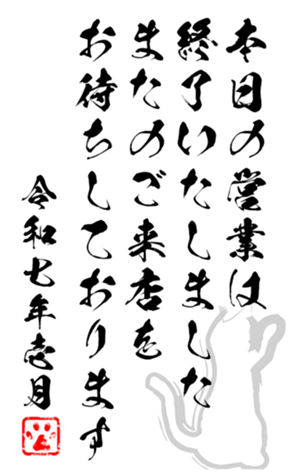 本日の営業は
終了いたしました
またのご来店を
お待ちしております
令和七年壱月